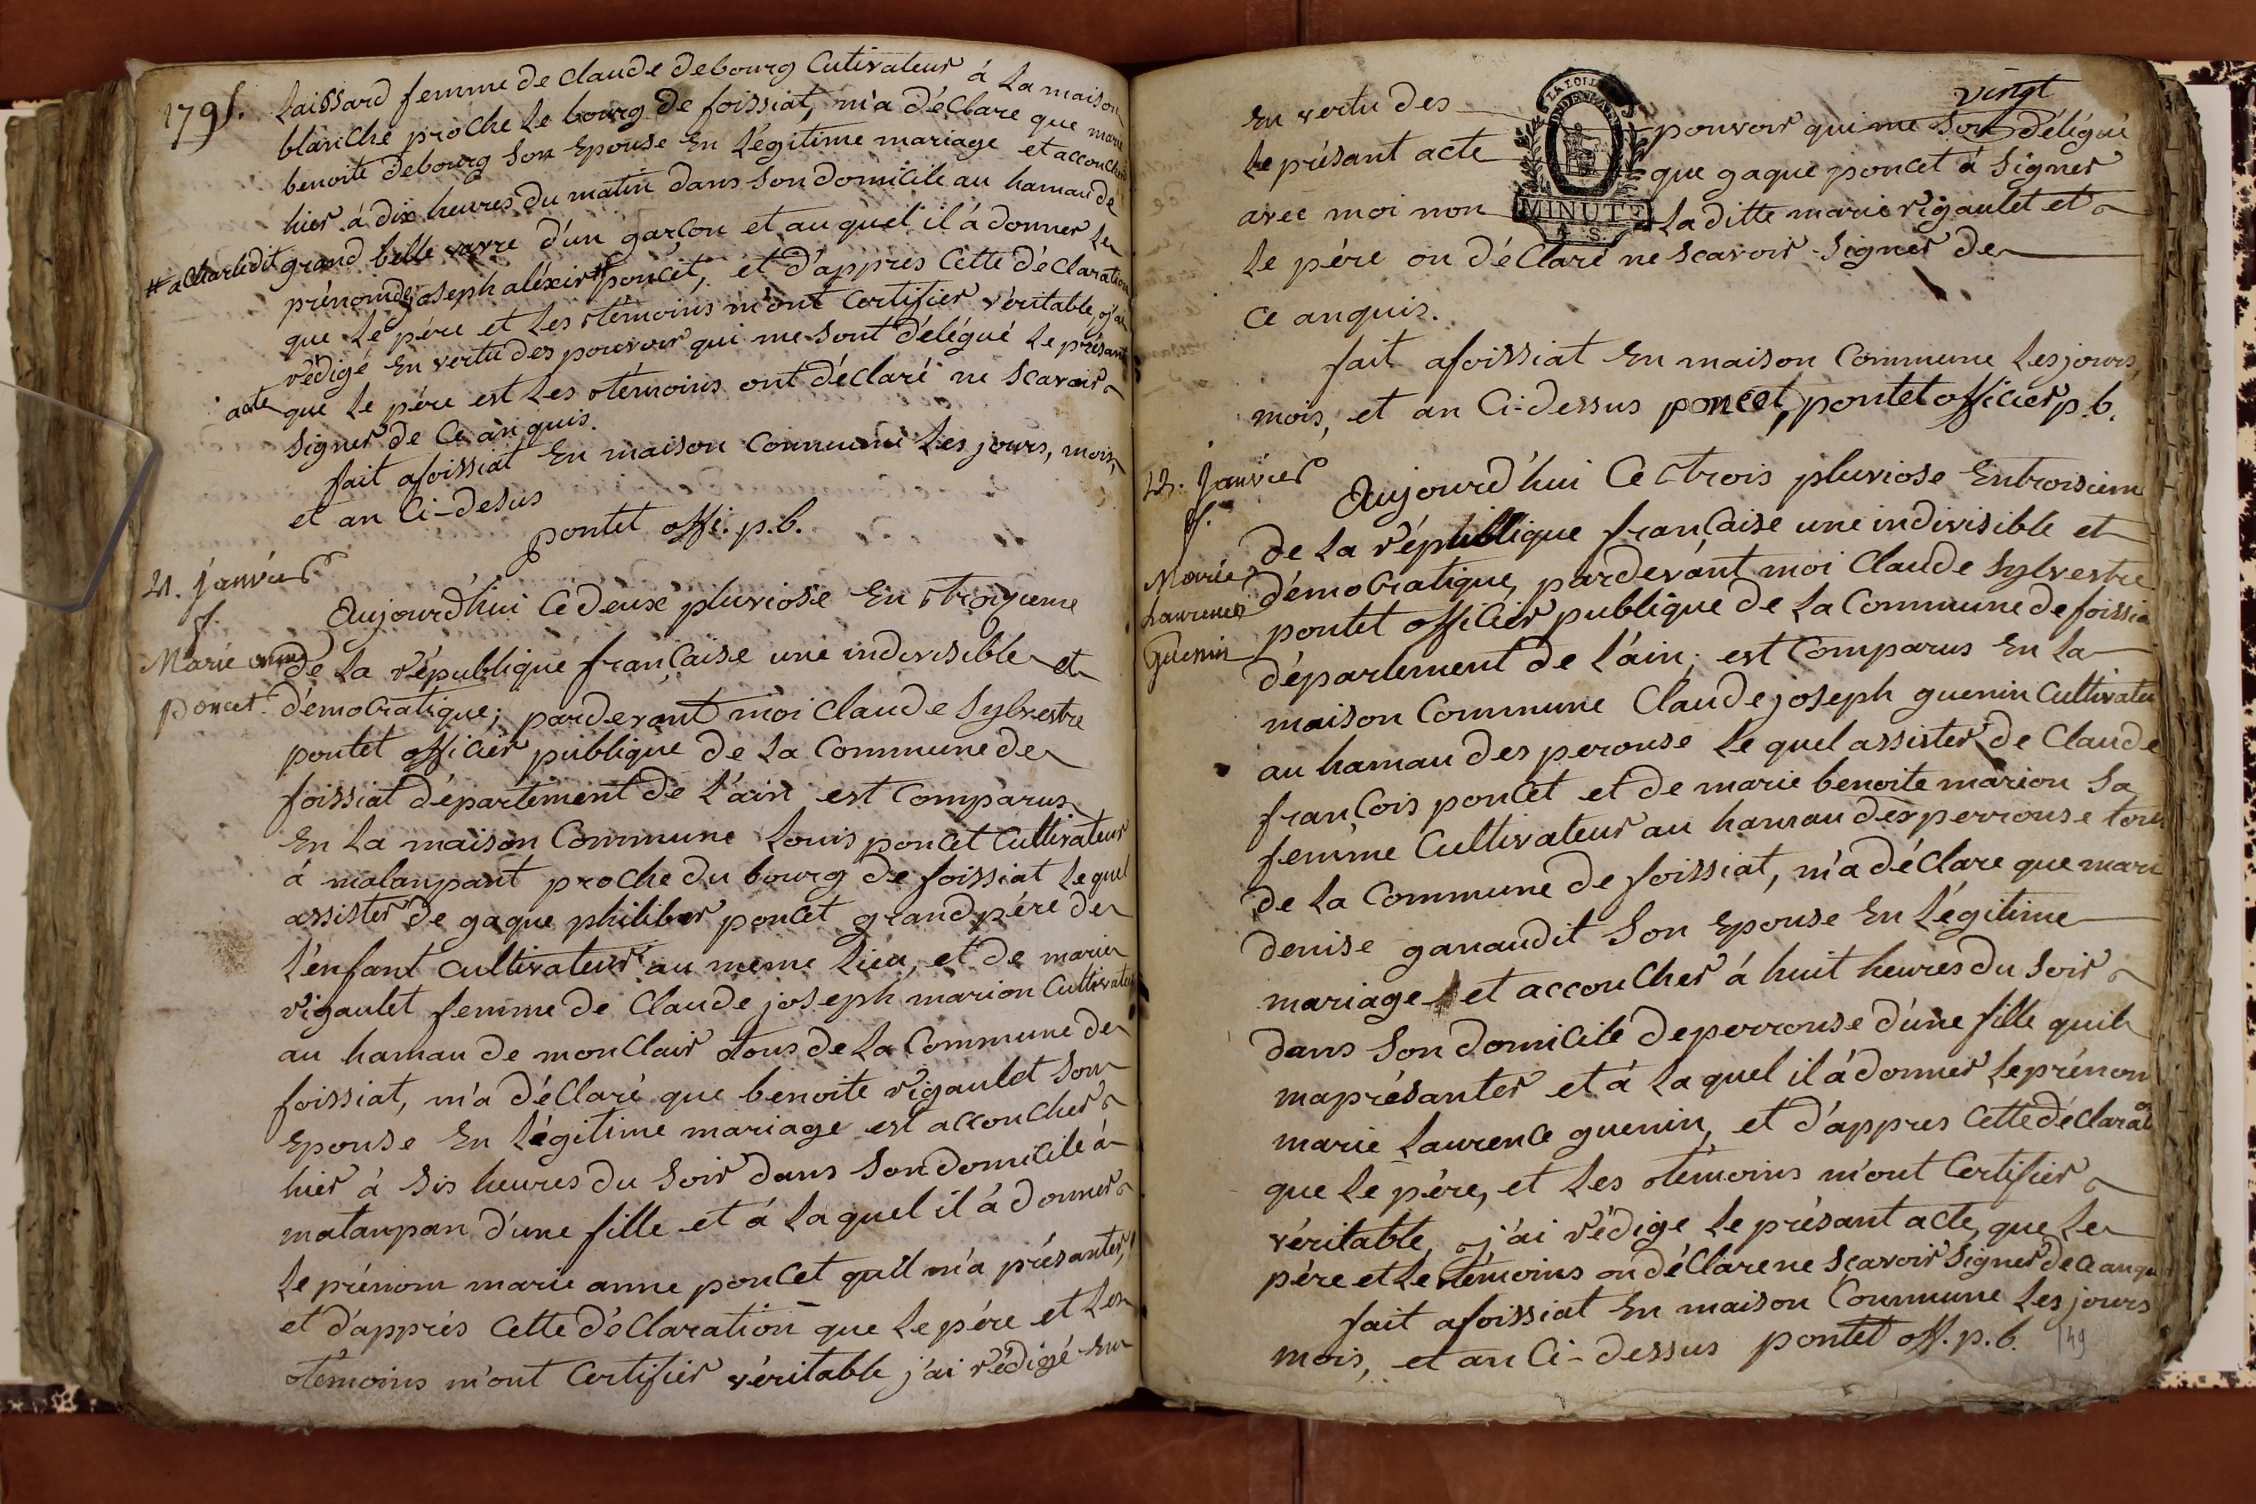 1795.
Laissard femme de claude debourg Cutivateur à La maison
blanche proche Le bourg de foissiat, m'a déClare que marie
benoite debourg son Epouse En Légitime mariage et accoucher
hier à dix heures du matin dans son domicile au hamau de
grand belle vavre d'un garcon et au quel il á donner Le
# a Charlédit
prénom de joseph alexis # poncet, et d'apprés Cette déClaration
que Le pére et Les témoins m'ont Certifier véritable, j'ai
rédigé En vertu des pouvoir qui me sont délégué Le présant
acte que Le pére est Les témoins ont déclaré ne Scavoir
Signer de Ce an quis.
fait afoissiat En maison Commune Les jours, mois,
et an Ci-desus
pontet offi. p.b.
21. janvier
f.
Marie anne
poncet.
Aujourd'hui Ce deux pluviose En troizieme
de La république française une indivisible et
démoCratique; pardevant moi Claude Sylvestre
pontet officier publique de La Commune de
foissiat département de L'ain est Comparus
En La maison Commune Louis ponCet Cultivateur
á malanpant proche du bourg de foissiat Le quel
assister de gaque philiber poncet grand pére de
L'enfant Cultivateur au meme Lieu, et de marie
rigaulet femme de Claude joseph marion Cultivateur
au hamau de monClair tous de La Commune de
foissiat, m'a déClaré que benoite rigaulet Son
Epouse En Légitime mariage est accoucher
hier á Sis heures du Soir dans Son domicile á
malanpan d'une fille et á La quel il á donner
Le prénom marie anne ponCet qu'il m'a présanter,
et d'apprés Cette déClaration que Le pére et Les
témoins m'ont Certifier véritable j'ai rédigé En
vingt
En vertu des pouvoir qui me Son délégué
Le présant acte que gaque poncet á Signer
avec moi non La ditte marie rigaulet et
MINUTE
Le pére on déClaré ne Scavoir Signer de
Ce anquis.
fait afoissiat En maison Commune Les jours,
mois, et an Ci-dessus poncet, pontet officier p.b.
22. janvier
f.
Marie
Laurence
Guenin
Aujourd'hui Ce trois pluviose Entroisieme
de La républlique française une indivisible et
démoCratique, pardevant moi Claude Sylvestre
pontet officier publique de La Commune de foissia
département de L'ain; est Comparus En La
maison Commune Claude joseph guenin Cultivateu
au hamau des perouse Le quel assister de Claude
françois ponCet et de marie benoite marion Sa
femme Cultivateur au hamau des perrouse tous
de La Commune de foissiat, m'a déClare que marie
denise ganaudit Son Epouse En Légitime
mariage et accouCher á huit heures du Soir
dans Son domicile de perrouse d'une fille quil
maprésanter et á La quel il á donner Le prénom
marie Laurence guenin, et d'appres Cette déClarati
que Le pére, et Les témoins m'ont Certifier
véritable, j'ai rédige Le présant acte, que Le
pére et Le témoins on déClare ne Scavoir Signer de Ce anqu
fait afoissiat En maison Commune Les jours
mois, et an Ci-dessus pontet off. p.b.
149